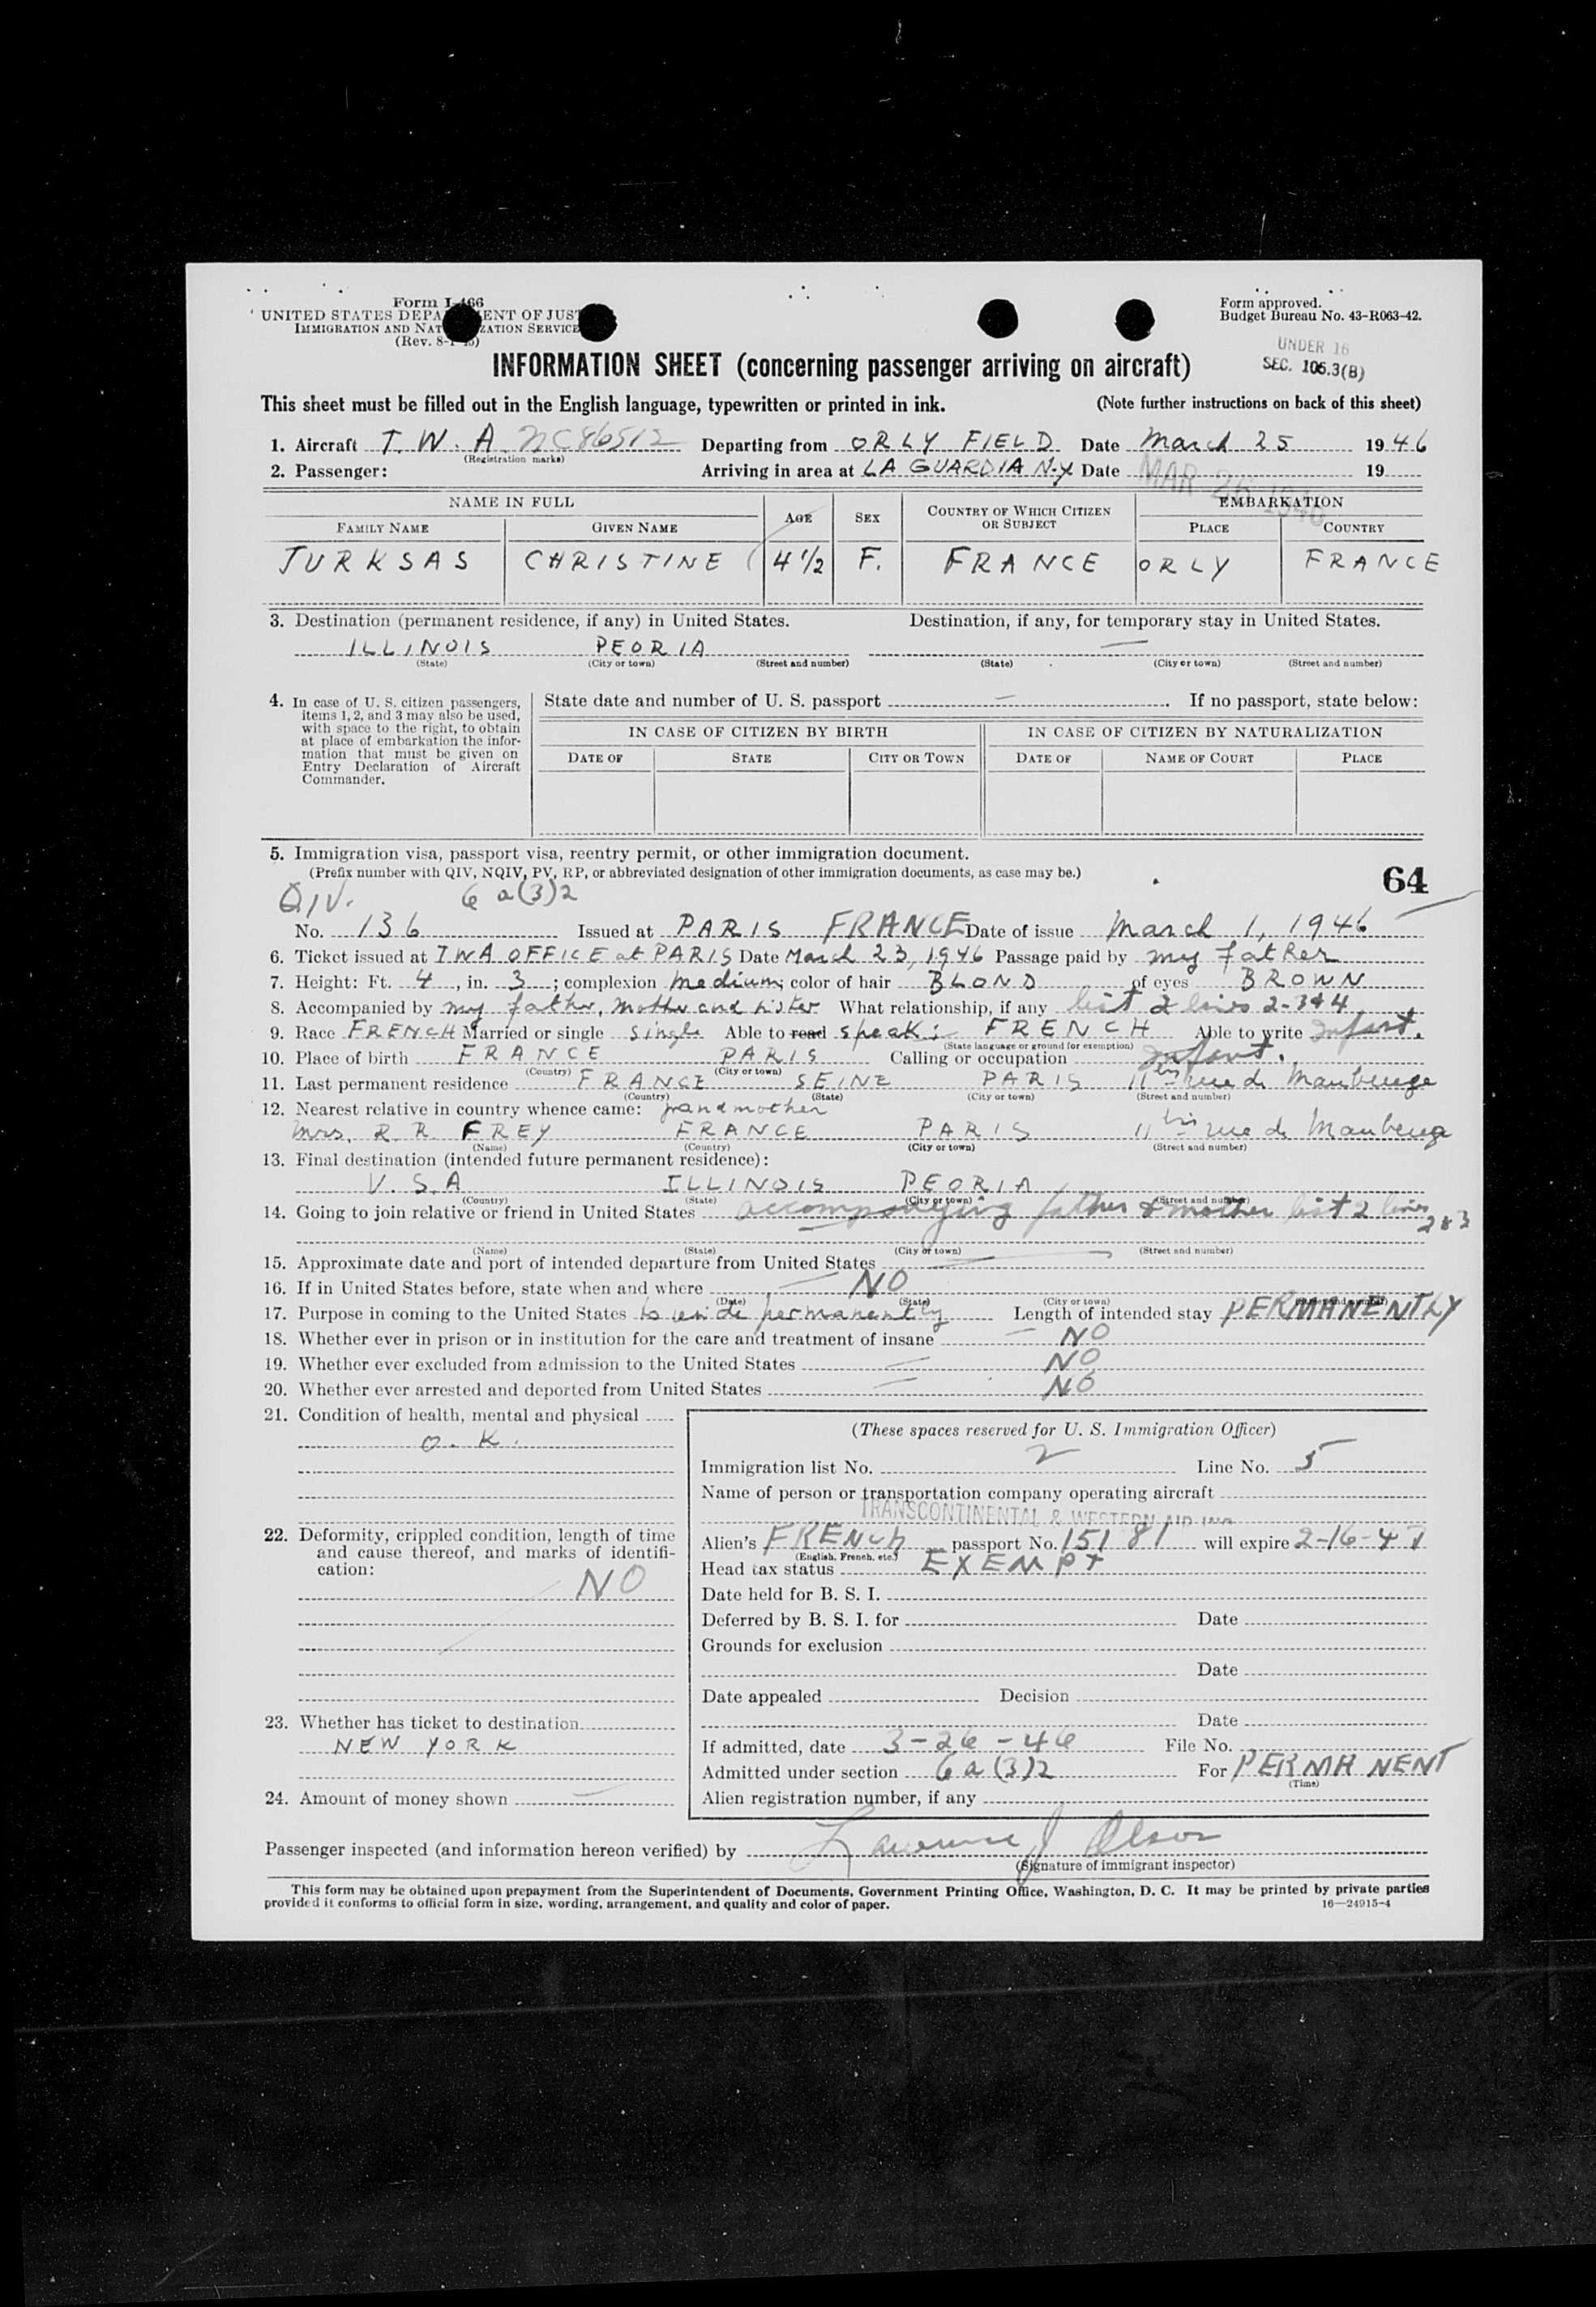 Form I-466
UNITED STATES DEPARTMENT OF JUSTICE
IMMIGRATION AND NATURALIZATION SERVICE
(Rev. 8-1-45)
Form approved.
Budget Bureau No. 43-R063-42.
UNDER 16
SEC. 106.3(B)
INFORMATION SHEET (concerning passenger arriving on aircraft)
This sheet must be filled out in the English language, typewritten or printed in ink. (Note further instructions on back of this sheet)
1. Aircraft T. W. A. NC86512 Departing from ORLY FIELD Date March 25 1946
(Registration marks)
2. Passenger: Arriving in area at LA GUARDIA N.Y Date MAR 26 1946 19
NAME IN FULL AGE SEX COUNTRY OF WHICH CITIZEN OR SUBJECT EMBARKATION
FAMILY NAME GIVEN NAME PLACE COUNTRY
JURKSAS CHRISTINE 4 1/2 F. FRANCE ORLY FRANCE
3. Destination (permanent residence, if any) in United States. Destination, if any, for temporary stay in United States.
ILLINOIS PEORIA —
(State) (City or town) (Street and number) (State) (City or town) (Street and number)
4. In case of U. S. citizen passengers, items 1, 2, and 3 may also be used, with space to the right, to obtain at place of embarkation the information that must be given on Entry Declaration of Aircraft Commander.
State date and number of U. S. passport — . If no passport, state below:
IN CASE OF CITIZEN BY BIRTH IN CASE OF CITIZEN BY NATURALIZATION
DATE OF STATE CITY OR TOWN DATE OF NAME OF COURT PLACE
5. Immigration visa, passport visa, reentry permit, or other immigration document.
(Prefix number with QIV, NQIV, PV, RP, or abbreviated designation of other immigration documents, as case may be.)
64
QIV. 6 a(3)2
No. 136 Issued at PARIS FRANCE Date of issue March 1, 1946
6. Ticket issued at TWA OFFICE at PARIS Date March 23, 1946 Passage paid by my father
7. Height: Ft. 4, in. 3; complexion medium; color of hair BLOND of eyes BROWN
8. Accompanied by my father, mother and sister What relationship, if any list 2 lines 2-3+4
9. Race FRENCH Married or single single Able to read speak: FRENCH Able to write Infant.
(State language or ground for exemption)
10. Place of birth FRANCE PARIS Calling or occupation Infant.
(Country) (City or town)
11. Last permanent residence FRANCE SEINE PARIS 11 bis rue de Maubeuge
(Country) (State) (City or town) (Street and number)
12. Nearest relative in country whence came: grandmother
Mrs. R. R. FREY FRANCE PARIS 11 bis rue de Maubeuge
(Name) (Country) (City or town) (Street and number)
13. Final destination (intended future permanent residence):
U. S. A ILLINOIS PEORIA
(Country) (State) (City or town) (Street and number)
14. Going to join relative or friend in United States accompanying father & mother list 2 lines 2&3
(Name) (State) (City or town) (Street and number)
15. Approximate date and port of intended departure from United States —
16. If in United States before, state when and where — NO
(Date) (State) (City or town) (Street and number)
17. Purpose in coming to the United States to reside permanently Length of intended stay PERMANENTLY
18. Whether ever in prison or in institution for the care and treatment of insane — NO
19. Whether ever excluded from admission to the United States — NO
20. Whether ever arrested and deported from United States — NO
21. Condition of health, mental and physical
O. K.
22. Deformity, crippled condition, length of time and cause thereof, and marks of identification:
NO
23. Whether has ticket to destination
NEW YORK
24. Amount of money shown —
(These spaces reserved for U. S. Immigration Officer)
Immigration list No. 2 Line No. 5
Name of person or transportation company operating aircraft
TRANSCONTINENTAL & WESTERN AIR INC
Alien's FRENCH passport No. 15181 will expire 2-16-47
(English, French, etc.)
Head tax status EXEMPT
Date held for B. S. I.
Deferred by B. S. I. for Date
Grounds for exclusion
Date
Date appealed Decision
Date
If admitted, date 3-26-46 File No.
Admitted under section 6a(3)2 For PERMANENT
(Time)
Alien registration number, if any
Passenger inspected (and information hereon verified) by Lawrence J Olson
(Signature of immigrant inspector)
This form may be obtained upon prepayment from the Superintendent of Documents, Government Printing Office, Washington, D. C. It may be printed by private parties
provided it conforms to official form in size, wording, arrangement, and quality and color of paper. 16—24915-4